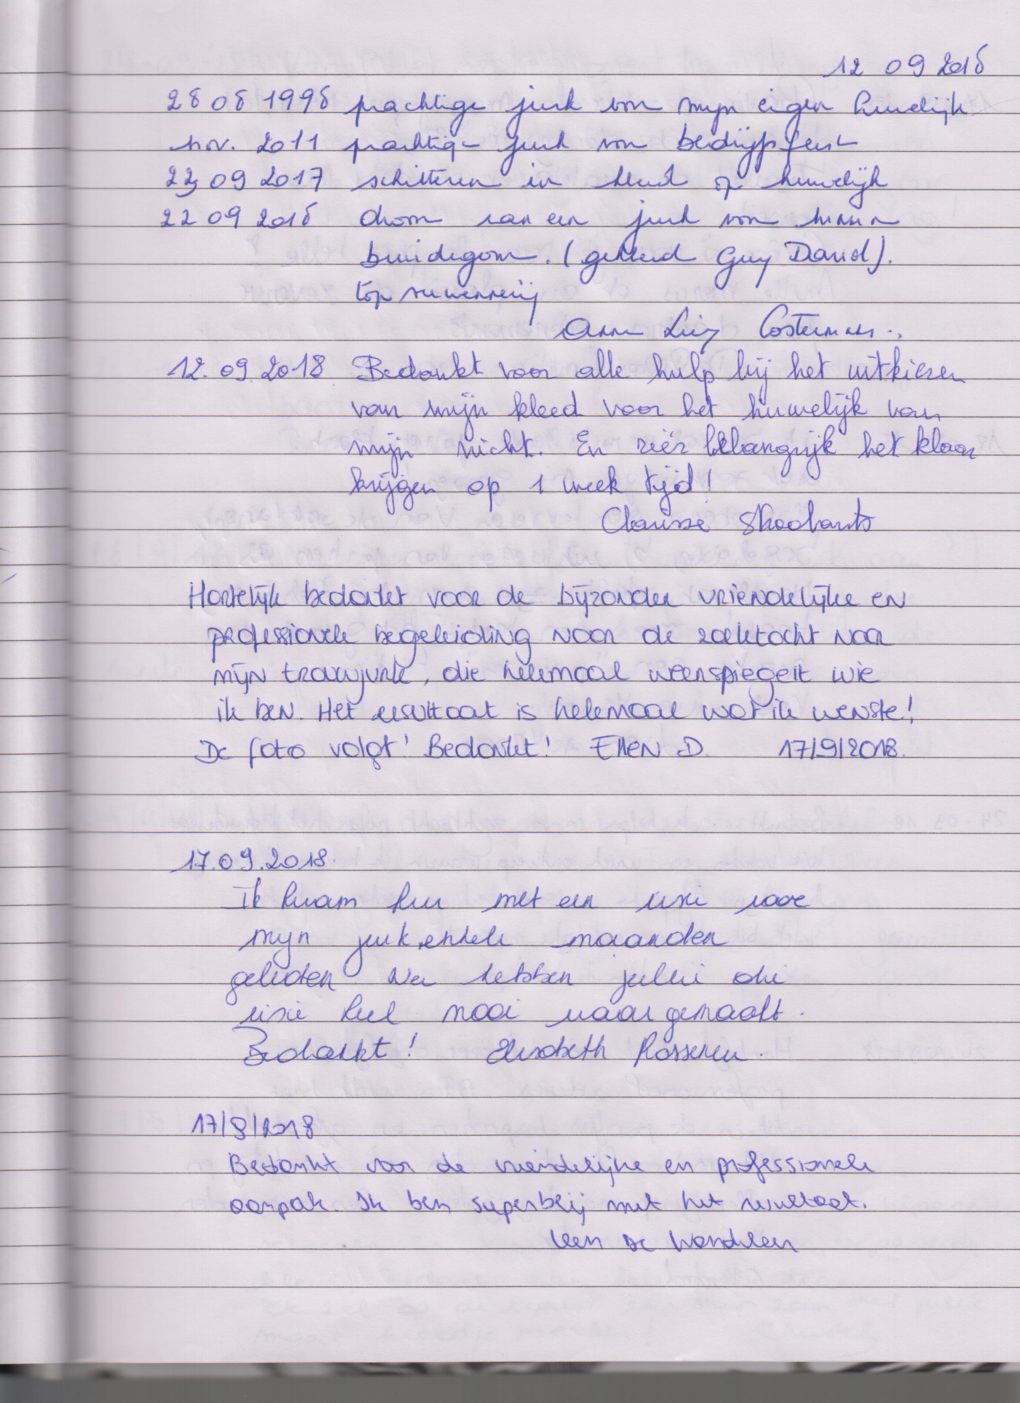 12 09 2018
28 08 1998 prachtige jurk voor mijn eigen huwelijk
nov. 2011 prachtige jurk voor bedrijfsfeest
23 09 2017 schitteren in op huwelijk
22 09 2018 droom van een jurk voor
bruidegom. (gekleed Guy David).
top
Anne Costermans.
12.09.2018 Bedankt voor alle hulp bij het uitkiezen
van mijn kleed voor het huwelijk van
mijn nicht. En zéér belangrijk het klaar
krijgen op 1 week tijd!
Clarisse Stroobants
Hartelijk bedankt voor de bijzonder vriendelijke en
professionele begeleiding naar de zoektocht naar
mijn trouwjurk, die helemaal weerspiegelt wie
ik ben. Het resultaat is helemaal wat ik wenste!
De foto volgt! Bedankt! Ellen D. 17/9/2018.
17.09.2018.
Ik kwam hier met een visie voor
mijn jurk, enkele maanden
geleden Nu hebben jullie die
visie heel mooi waargemaakt.
Bedankt! Elisabeth
17/9/2018
Bedankt voor de vriendelijke en professionele
aanpak. Ik ben superblij met het resultaat.
Leen De